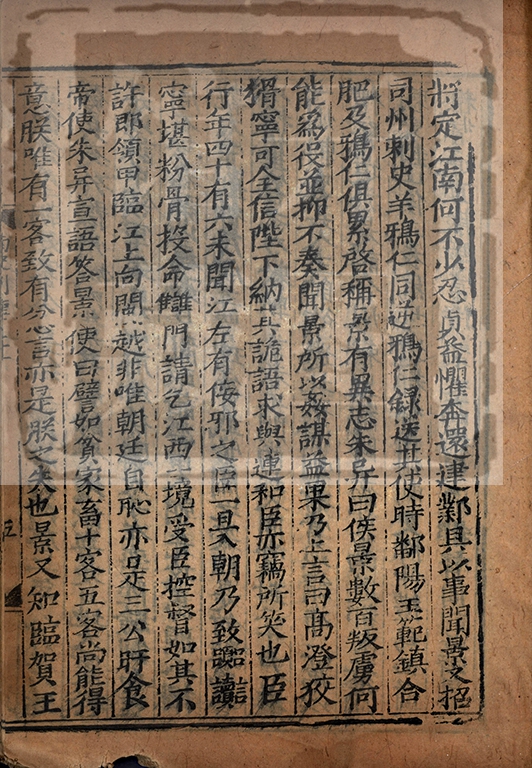 將定江南何不少忍貞益懼奔還建鄴具以事聞景又招
司州刺史羊鴉仁同逆鴉仁録送其使時鄱陽王範鎮合
肥及鴉仁俱累啓稱景有異志朱异曰侯景數百叛虜何
能爲役並抑不奏聞景所以姦謀益果乃上言曰高澄狡
猾寧可全信陛下納其詭語求與連和臣亦竊所笑也臣
行年四十有六未聞江左有佞邪之臣一旦入朝乃致嚻讟
寧堪粉骨投命讎門請乞江西一境受臣控督如其不
許即領甲臨江上向閩越非唯朝廷自恥亦是三公旰食
帝使朱异宣語答景使曰譬如貧家畜十客五客尚能得
意朕唯有一客致有忿言亦是朕之失也景又知臨賀王